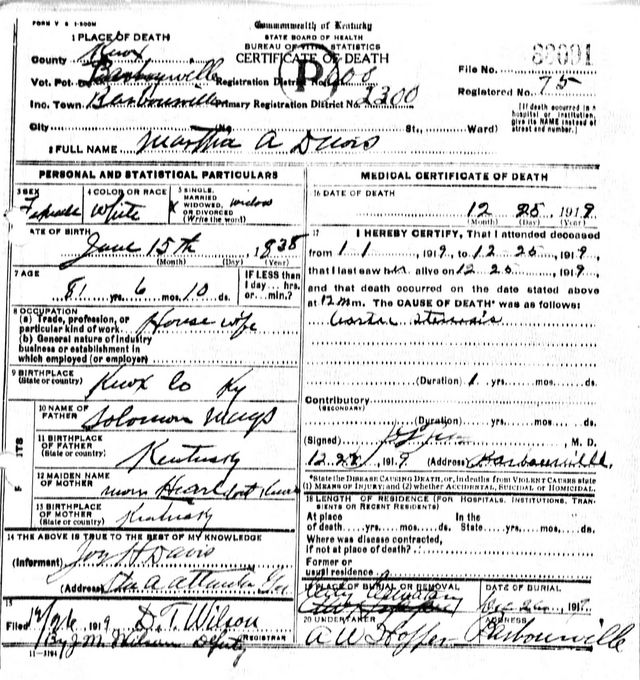 FORM V S 1-200M
Commonwealth of Kentucky
STATE BOARD OF HEALTH
BUREAU OF VITAL STATISTICS
CERTIFICATE OF DEATH
1 PLACE OF DEATH
County Knox
File No.
Vot. Pct. Barbourville Registration District No. 600
Registered No. 75
P
Inc. Town Barbourville Primary Registration District No. 2300
[If death occurred in a hospital or institution, give its NAME instead of street and number.]
City (No. St., Ward)
2 FULL NAME Martha A Davis
PERSONAL AND STATISTICAL PARTICULARS
3 SEX Female
4 COLOR OR RACE White
5 SINGLE, MARRIED WIDOWED, OR DIVORCED (Write the word) widow
DATE OF BIRTH
June 15th, 1838
(Month) (Day) (Year)
7 AGE
81 yrs. 6 mos. 10 ds.
IF LESS than 1 day... hrs. or... min.?
8 OCCUPATION
(a) Trade, profession, or particular kind of work House wife
(b) General nature of industry business or establishment in which employed (or employer)
9 BIRTHPLACE
(State or country) Knox Co Ky
10 NAME OF FATHER Solomon
11 BIRTHPLACE OF FATHER
(State or country) Kentucky
12 MAIDEN NAME OF MOTHER
13 BIRTHPLACE OF MOTHER
(State or country) Kentucky
14 THE ABOVE IS TRUE TO THE BEST OF MY KNOWLEDGE
(Informant) H Davis
(Address)
15
Filed 12/26 1919 D. T. Wilson
REGISTRAR
By J. M. Wilson Deputy
11-3194
MEDICAL CERTIFICATE OF DEATH
16 DATE OF DEATH
12 25 1919
(Month) (Day) (Year)
17 I HEREBY CERTIFY, That I attended deceased
from 1 1, 1919, to 12 25, 1919,
that I last saw h alive on 12 25, 1919,
and that death occurred on the date stated above
at 12 M m. The CAUSE OF DEATH* was as follows:
(Duration) 1 yrs. mos. ds.
Contributory
(SECONDARY)
(Duration) yrs. mos. ds.
(Signed) , M. D.
1919 (Address) Barbourville
*State the DISEASE CAUSING DEATH, or, in deaths from VIOLENT CAUSES state
(1) MEANS OF INJURY; and (2) whether ACCIDENTAL, SUICIDAL or HOMICIDAL.
18 LENGTH OF RESIDENCE (FOR HOSPITALS, INSTITUTIONS, TRANSIENTS OR RECENT RESIDENTS)
At place of death yrs. mos. ds.
In the State yrs. mos. ds.
Where was disease contracted,
If not at place of death?
Former or usual residence
19 PLACE OF BURIAL OR REMOVAL
DATE OF BURIAL
1919
20 UNDERTAKER
ADDRESS
Barbourville